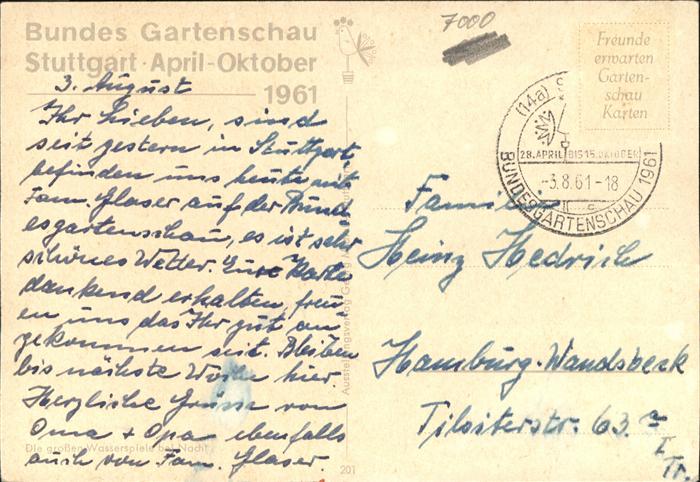 Bundes Gartenschau
Stuttgart · April-Oktober
1961
7000
Freunde
erwarten
Garten-
schau
Karten
(14a) S
28. APRIL BIS 15. OKTOBER
-3.8.61-18
c
BUNDESGARTENSCHAU 1961
3. August
Ihr Lieben, sind
seit gestern in Stuttgart,
befinden uns heute mit
Fam. Glaser auf der Bund
esgartenschau, es ist sehr
schönes Wetter. Eure Karte
dankend erhalten, freu
en uns das Ihr gut an
gekommen seit. Bleiben
bis nächste Woche hier.
Herzliche Grüsse von
Oma + Opa ebenfalls
auch von Fam. Glaser.
Die großen Wasserspiele bei Nacht
201
Familie
Heinz Hedrich
Hamburg-Wandsbeck
Tilsiterstr. 63.
I
Tr.